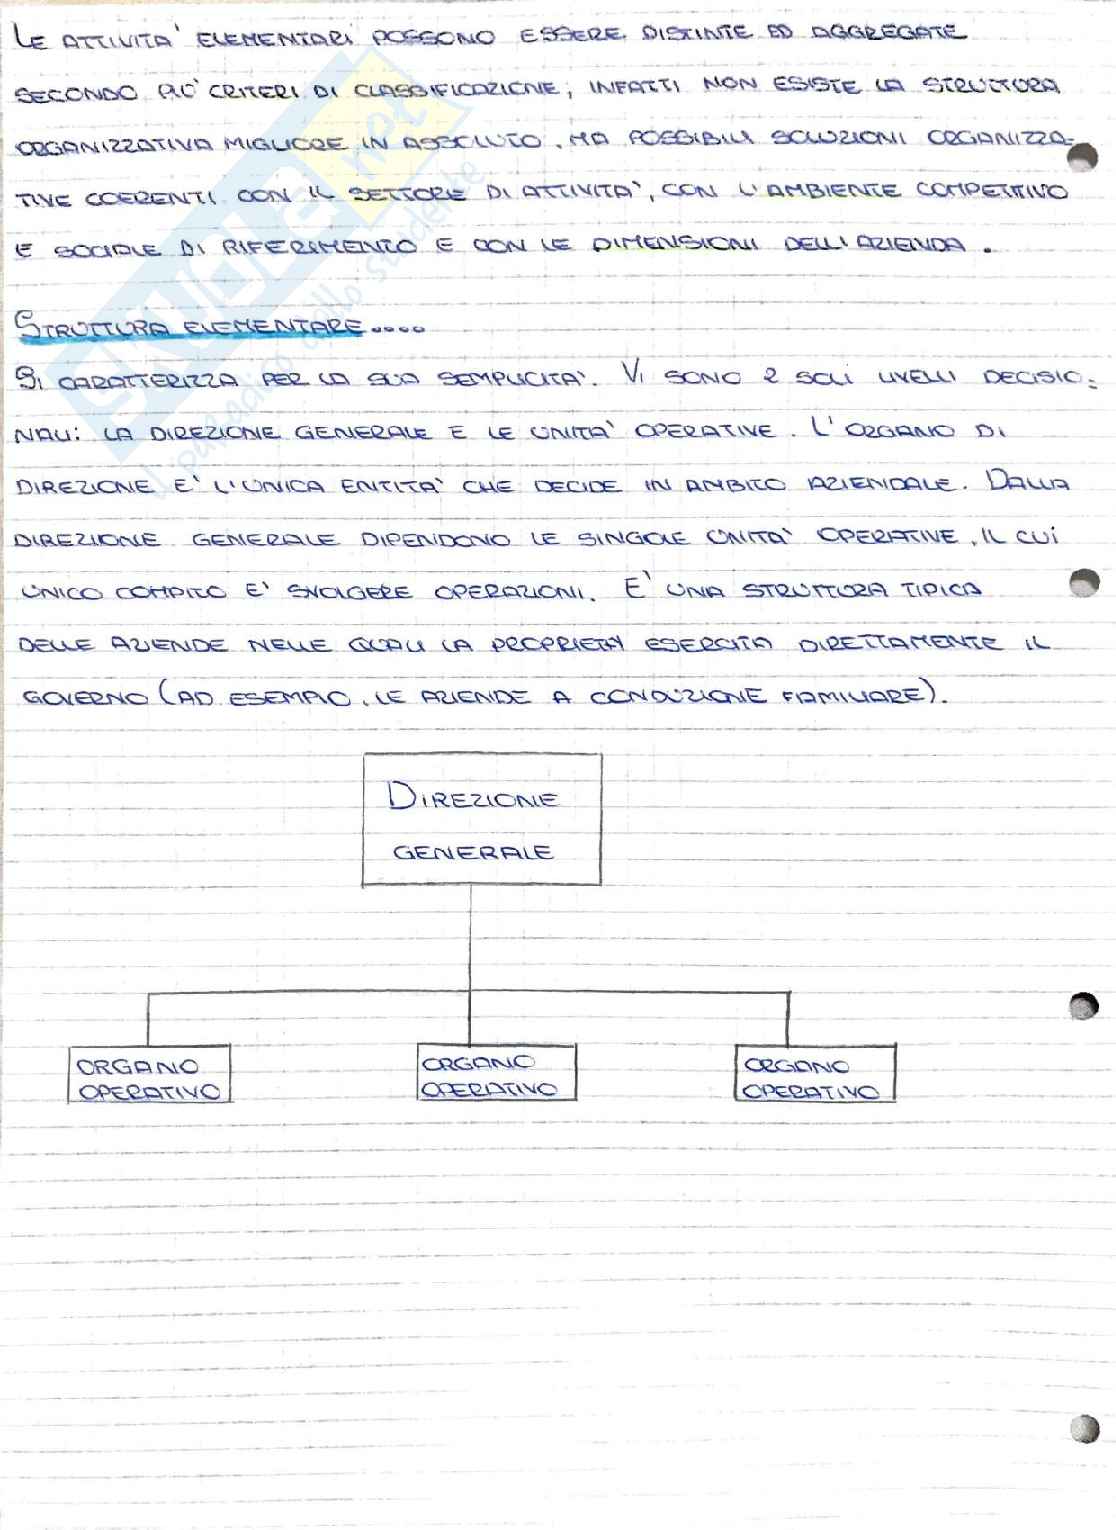 LE ATTIVITA' ELEMENTARI POSSONO ESSERE DISTINTE ED AGGREGATE
SECONDO PIU' CRITERI DI CLASSIFICAZIONE; INFATTI NON ESISTE LA STRUTTURA
ORGANIZZATIVA MIGLIORE IN ASSOLUTO, MA POSSIBILI SOLUZIONI ORGANIZZA-
TIVE COERENTI CON IL SETTORE DI ATTIVITA', CON L'AMBIENTE COMPETITIVO
E SOCIALE DI RIFERIMENTO E CON LE DIMENSIONI DELL'AZIENDA.
STRUTTURA ELEMENTARE....
SI CARATTERIZZA PER LA SUA SEMPLICITA'. VI SONO 2 SOLI LIVELLI DECISIO-
NALI: LA DIREZIONE GENERALE E LE UNITA' OPERATIVE. L'ORGANO DI
DIREZIONE E' L'UNICA ENTITA' CHE DECIDE IN AMBITO AZIENDALE. DALLA
DIREZIONE GENERALE DIPENDONO LE SINGOLE UNITA' OPERATIVE, IL CUI
UNICO COMPITO E' SVOLGERE OPERAZIONI. E' UNA STRUTTURA TIPICA
DELLE AZIENDE NELLE QUALI LA PROPRIETA' ESERCITA DIRETTAMENTE IL
GOVERNO (AD ESEMPIO, LE AZIENDE A CONDUZIONE FAMILIARE).
DIREZIONE
GENERALE
ORGANO
OPERATIVO
ORGANO
OPERATIVO
ORGANO
OPERATIVO
SKUOLA.net
il paradiso dello studente